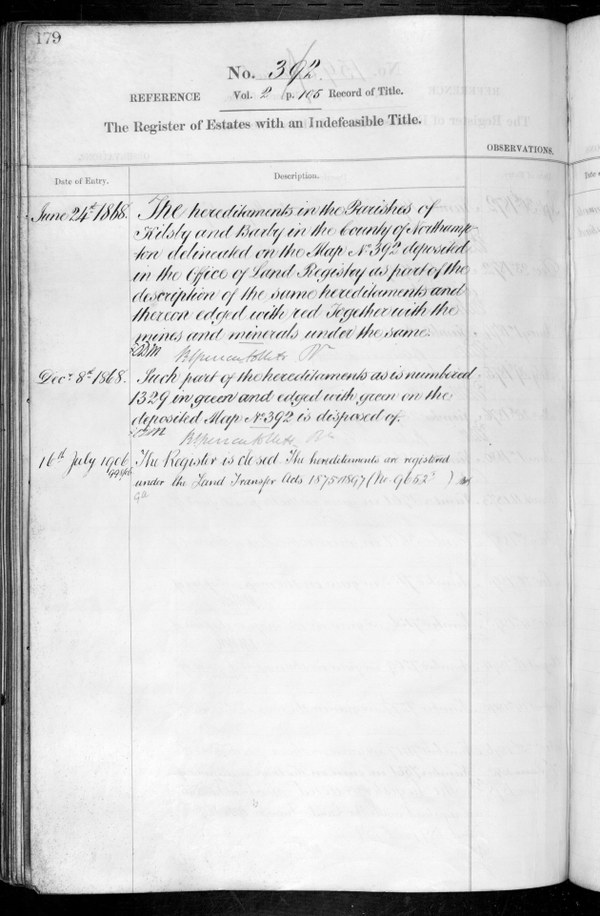 179
No. 392.
REFERENCE Vol. 2 p. 105 Record of Title.
The Register of Estates with an Indefeasible Title.
OBSERVATIONS.
Date of Entry.
Description.
June 24th 1868. The hereditaments in the Parishes of
Kilsby and Barby in the County of Northamp-
ton delineated on the Map No. 392 deposited
in the Office of Land Registry as part of the
description of the same hereditaments and
thereon edged with red Together with the
mines and minerals under the same.
Decr. 8th 1868. Such part of the hereditaments as is numbered
1329 in green and edged with green on the
deposited Map No. 392 is disposed of.
16th July 1906 The Register is closed. The hereditaments are registered
under the Land Transfer Acts 1875 & 1897 (No. 96523)